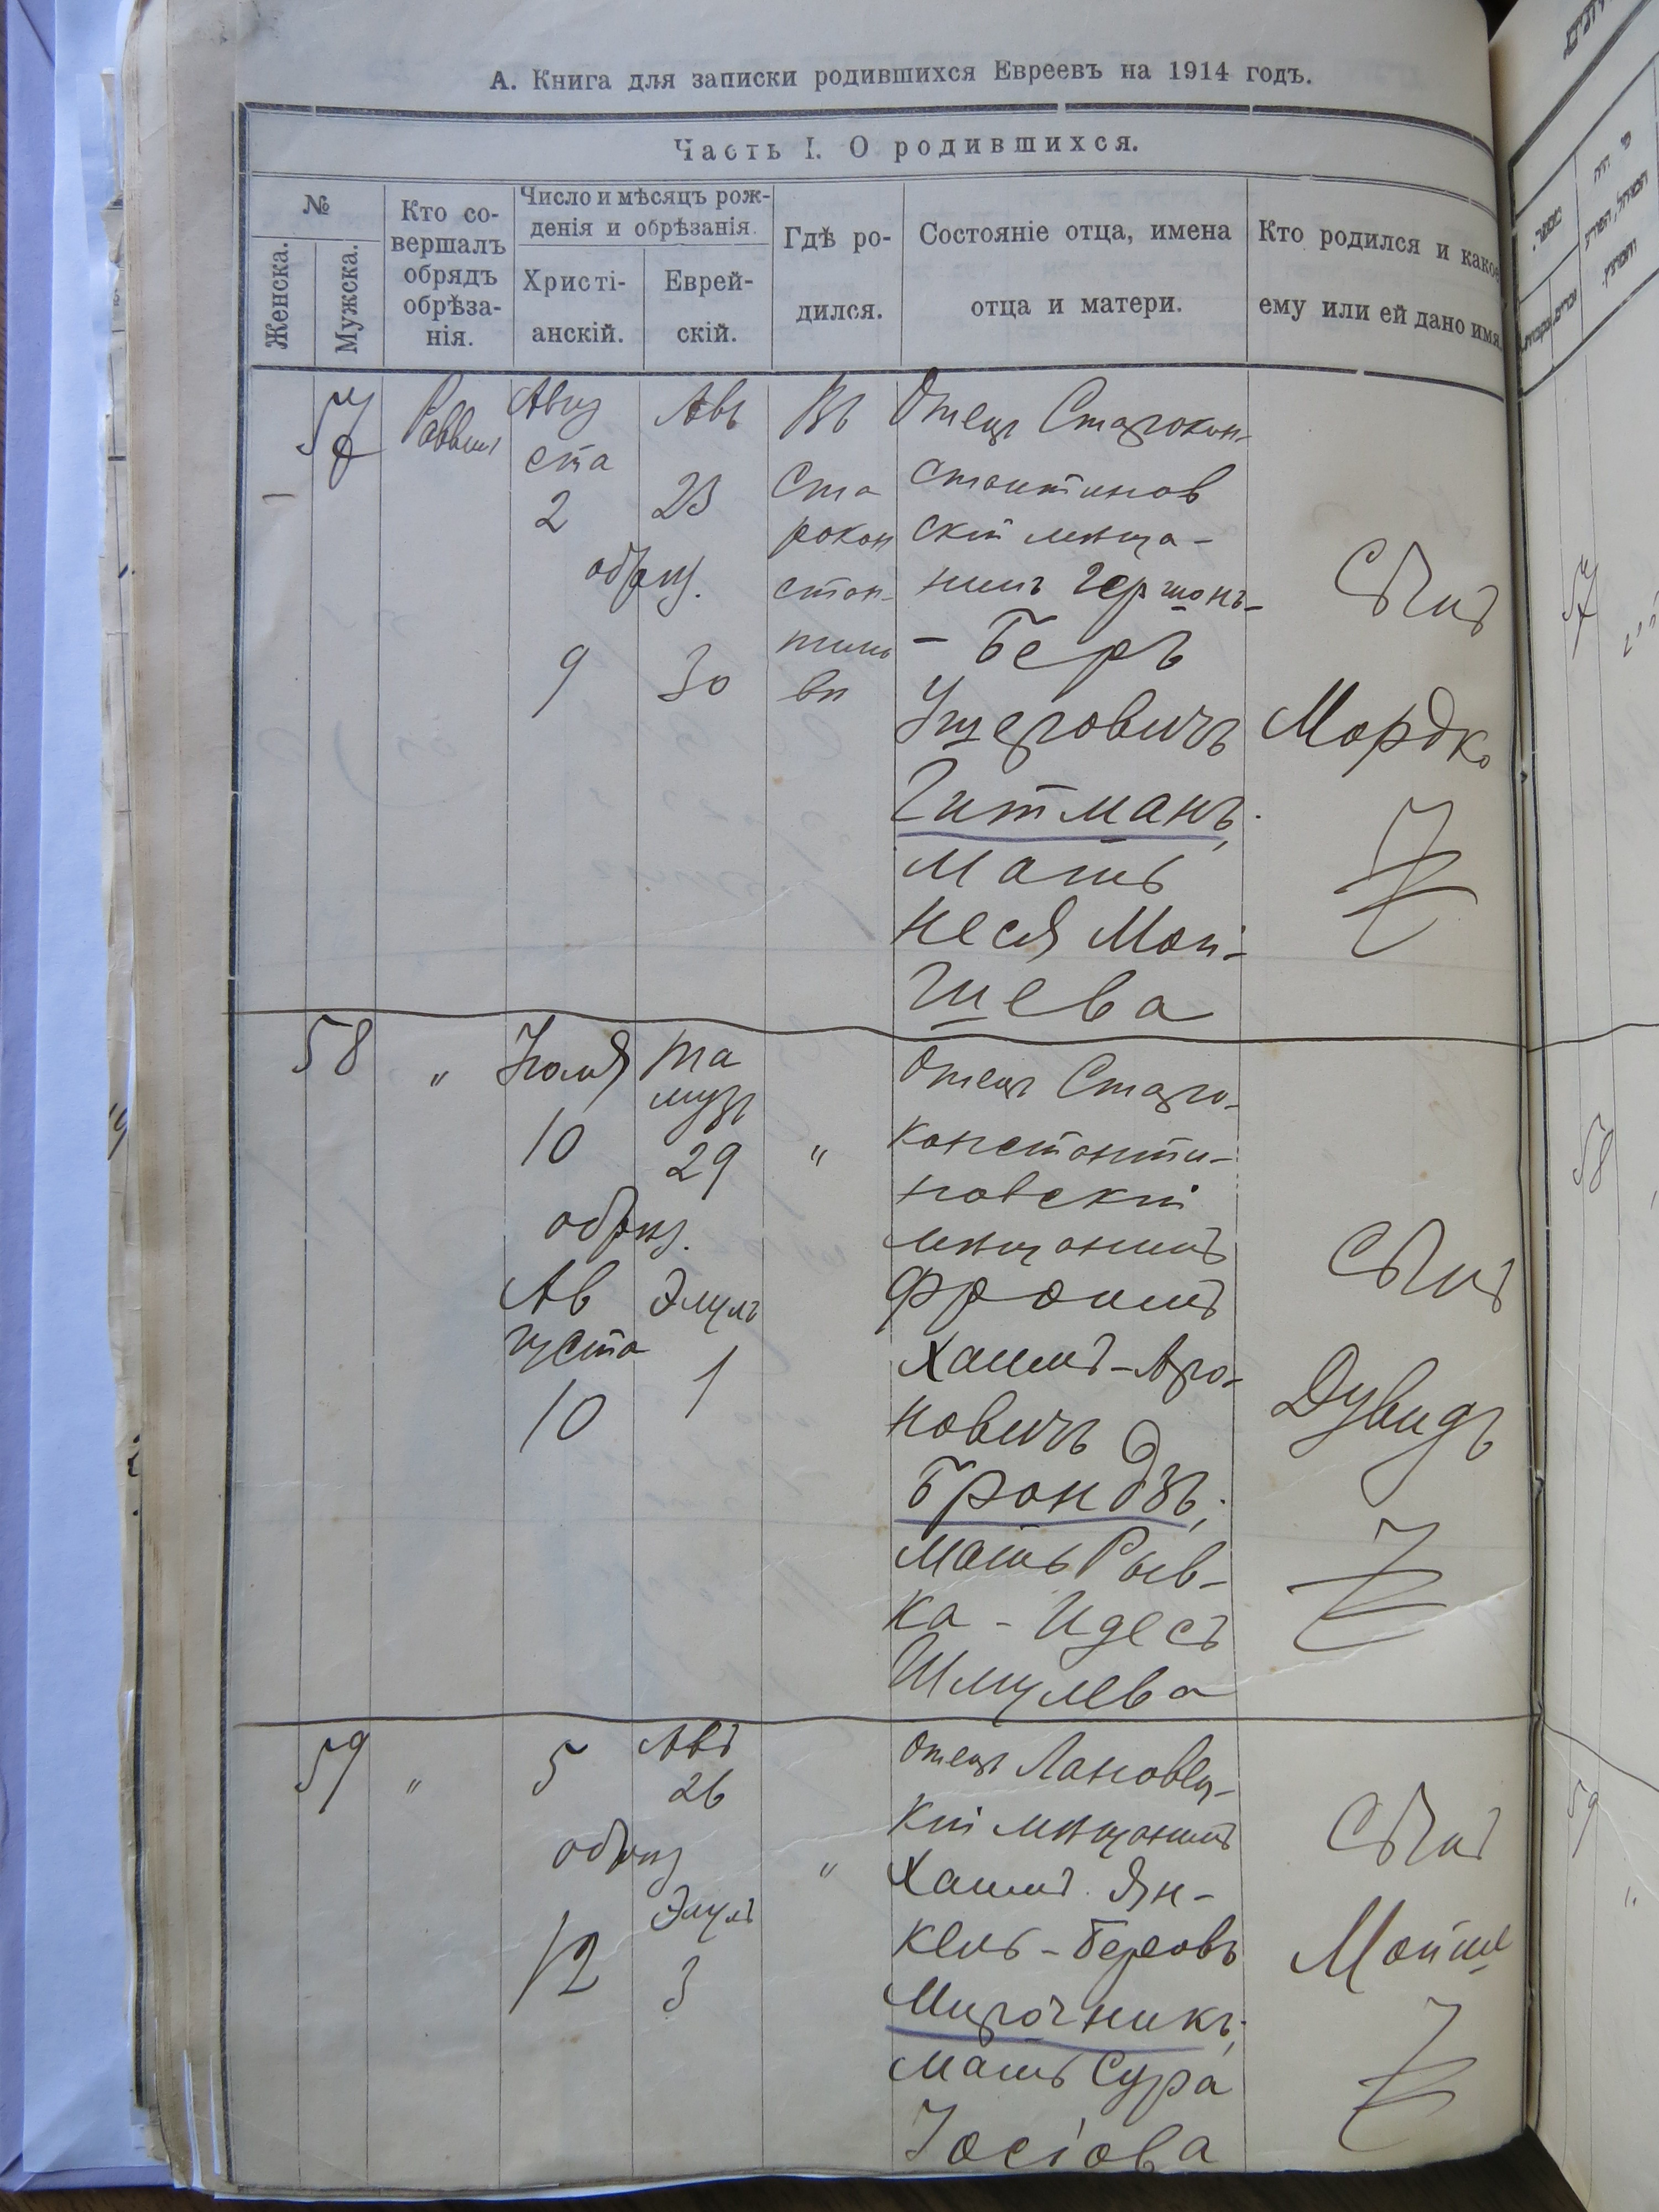 А. Книга для записки родившихся Евреевъ на 1914 годъ.
Часть I. О родившихся.
№
Женска.
Мужска.
Кто со-
вершалъ
обрядъ
обрѣза-
нія.
Число и мѣсяцъ рож-
денія и обрѣзанія.
Христі-
анскій.
Еврей-
скій.
Гдѣ ро-
дился.
Состояніе отца, имена
отца и матери.
Кто родился и какое
ему или ей дано имя.
57
Раввин
Авгу
ста
2
обрѣз.
9
Авъ
23
30
Въ
Ста
рокон
стан-
тино
вѣ
Отецъ Старокон-
стантинов
скій мѣща-
нинъ Гершонъ-
- Беръ
Ушеровичъ
Гитманъ,
мать
Неся Мой-
шева
Сынъ
Мордко
58
"
Іюля
10
обрѣз.
Ав
густа
10
Та
музъ
29
Элулъ
1
"
Отецъ Старо-
константи-
новскій
мѣщанинъ
Фроимъ
Хаимъ-Аро-
новичъ
Брондзъ,
мать Рыв-
ка - Идесъ
Шмулева
Сынъ
Дувидъ
59
"
5
обрѣз
12
Авъ
26
Элулъ
3
"
Отецъ Лановец-
кій мѣщанинъ
Хаимъ Ян-
кель-Беровъ
Мирочникъ,
мать Сура
Іосіова
Сынъ
Мойше
57
58
59